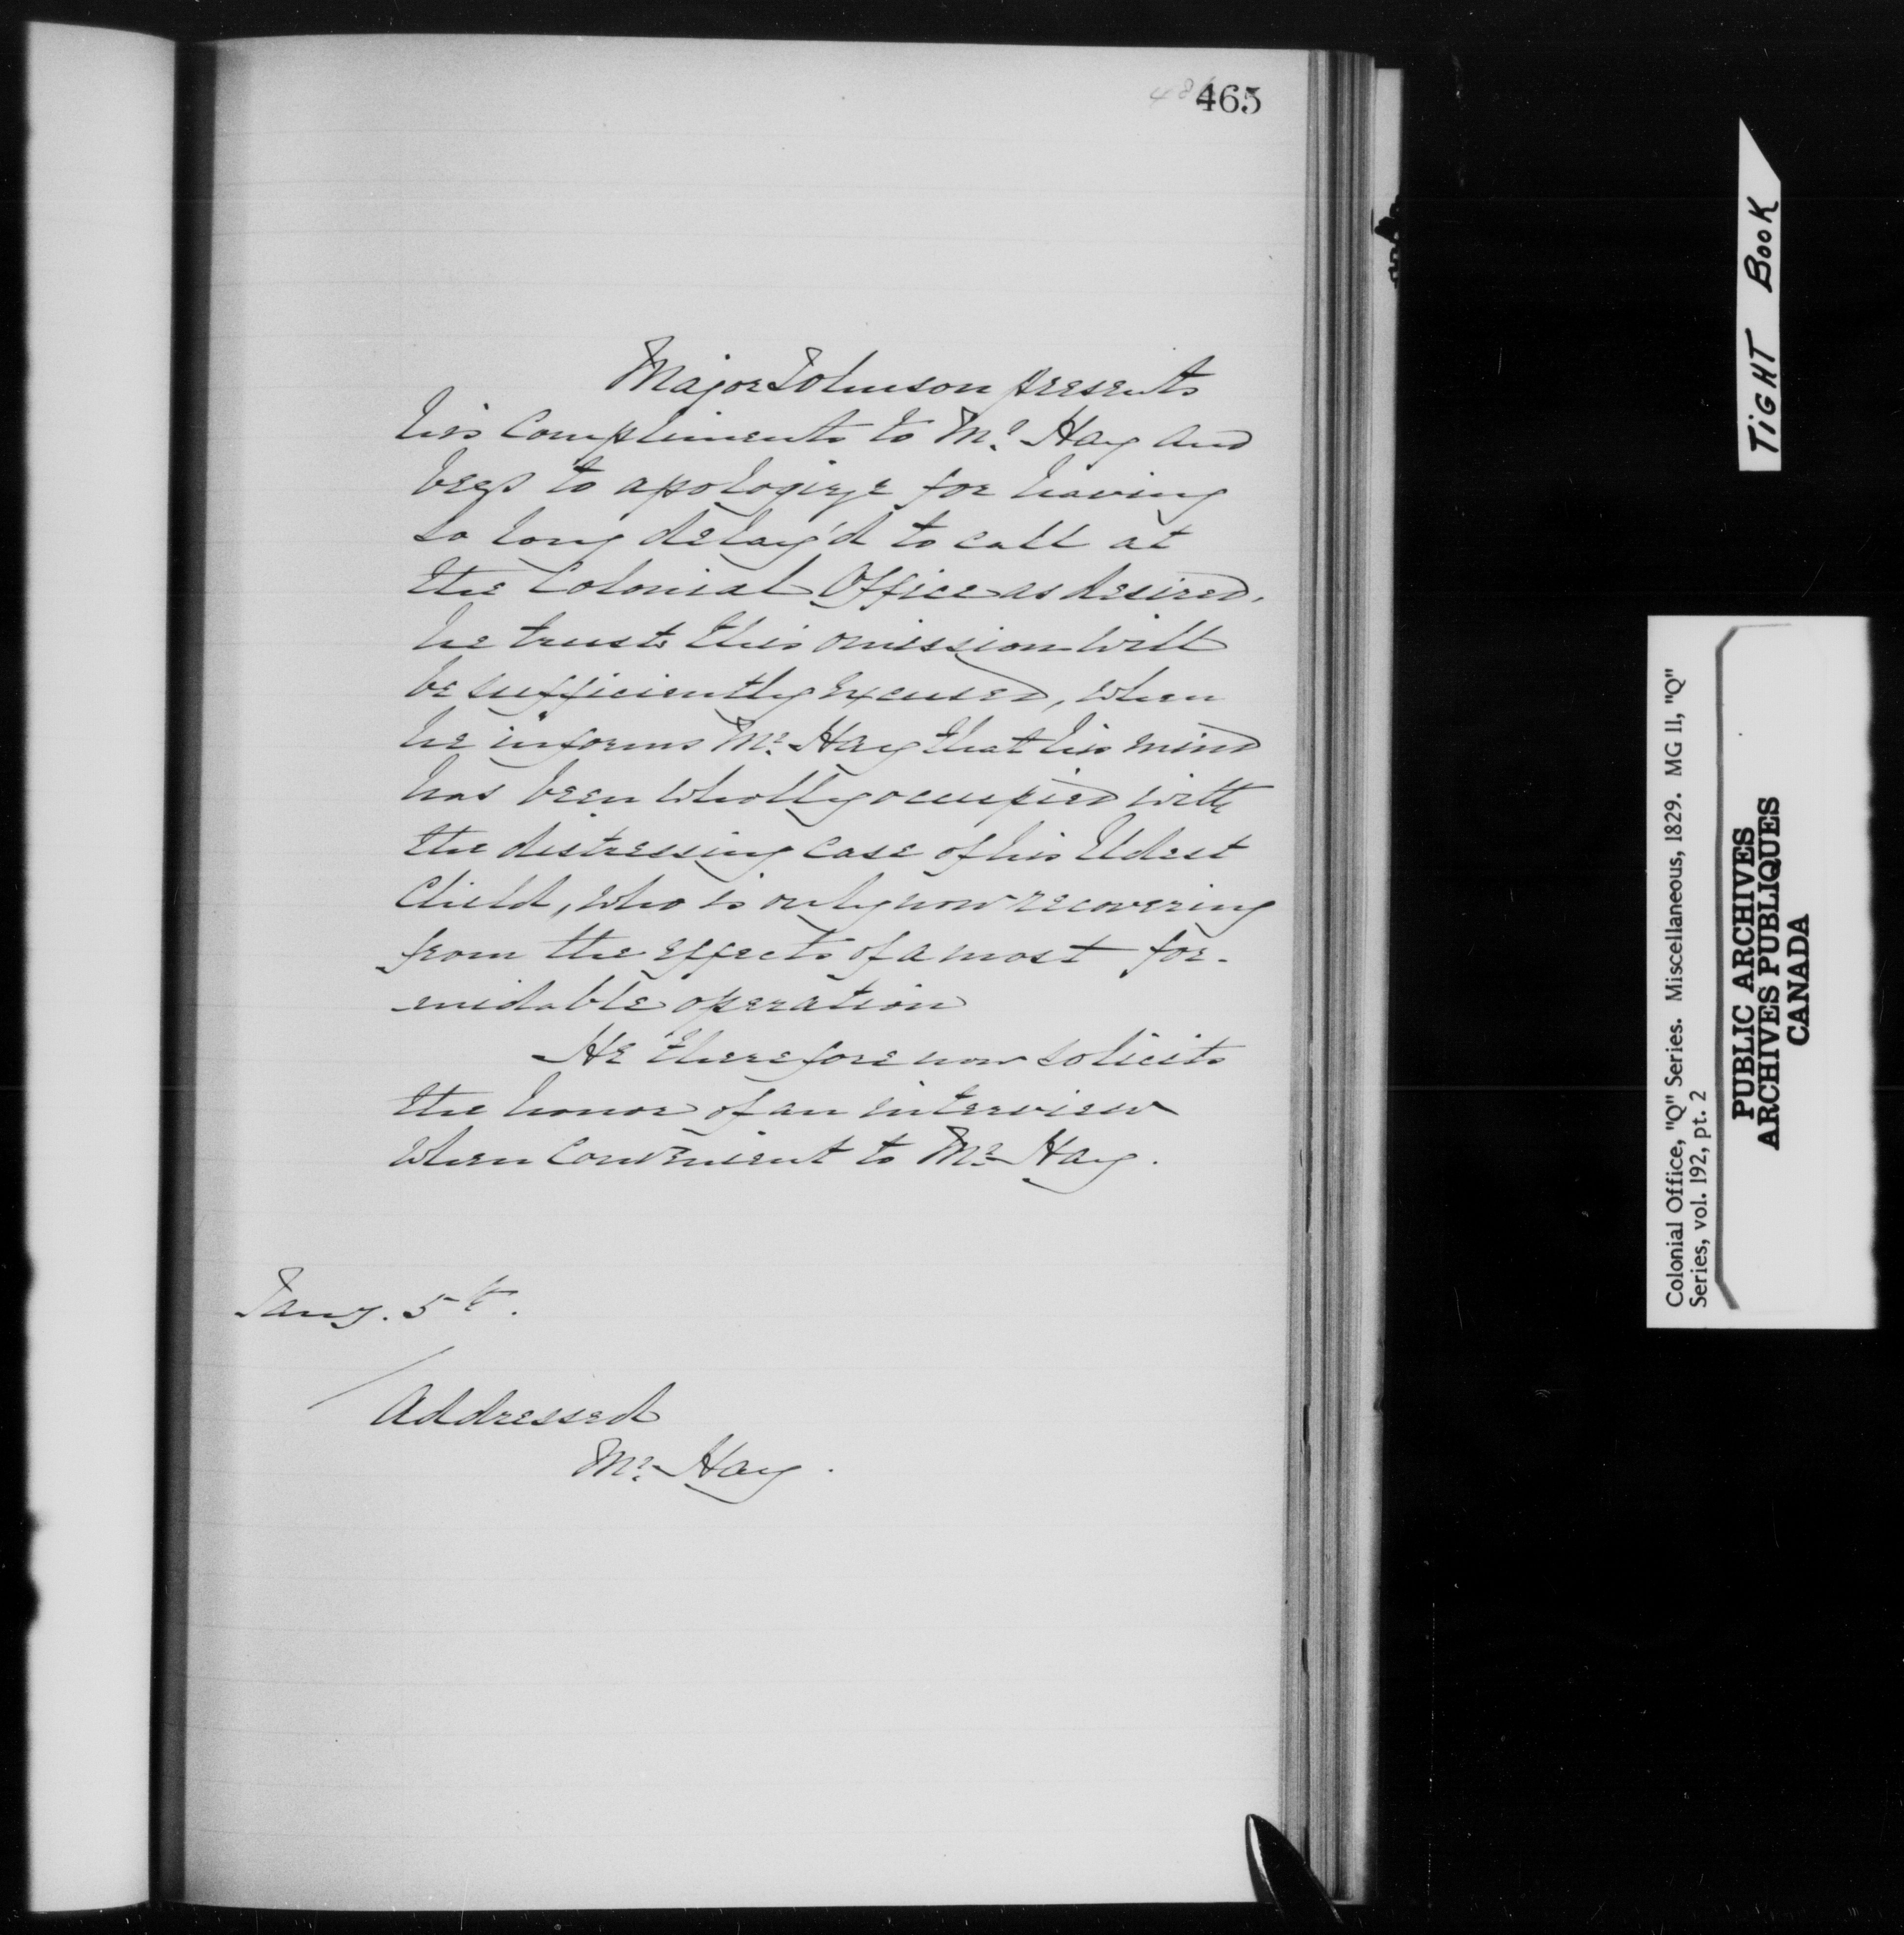 465
Major Johnson presents
his Compliments to Mr. Hay and
begs to apologize for having
so long delay'd to call at
the Colonial Office as desired,
he trusts this omission will
be sufficiently excused, when
he informs Mr. Hay that his mind
has been wholly occupied with
the distressing case of his Eldest
Child, who is only now recovering
from the effects of a most for-
-midable operation
He therefore now solicits
the honor of an interview
when convenient to Mr. Hay.
Jany. 5th.
Addressed
Mr. Hay.
TIGHT BOOK
Colonial Office, "Q" Series. Miscellaneous, 1829. MG 11, "Q"
Series, vol. 192, pt. 2
PUBLIC ARCHIVES
ARCHIVES PUBLIQUES
CANADA